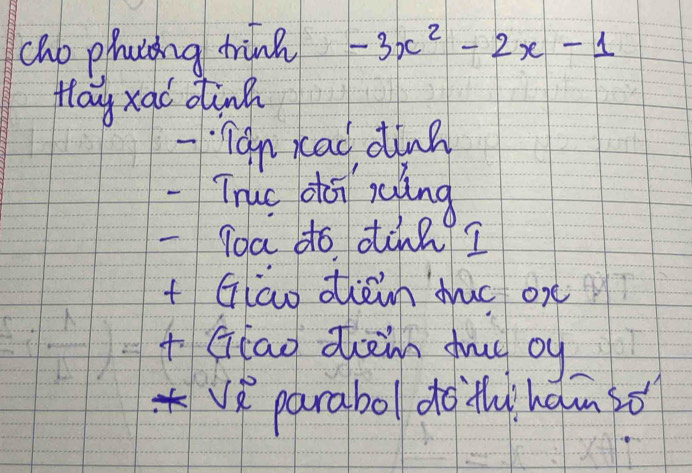 Cho phương trình -3x² - 2x - 1
Hãy xác định
- Tập xác định
- Trục đối xứng
- Toạ độ đỉnh I
+ Giao điểm trục ox
+ Giao điểm trục oy
* Vẽ parabol đồ thị hàm số